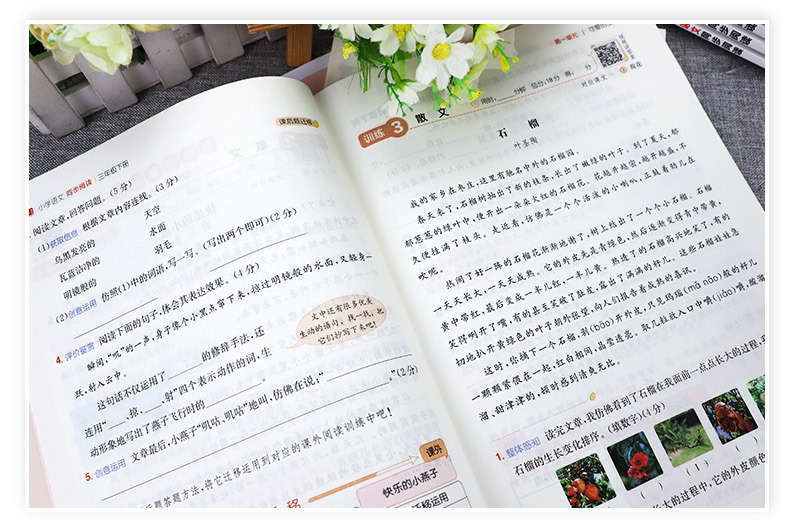 小学语文 同步阅读 | 三年级下册
课后题迁移
阅读文章,回答问题。(5分)
(1)获取信息 根据文章内容连线。(3分)
乌黑发亮的 天空
瓦蓝洁净的 水面
明镜般的 羽毛
(2)创意运用 仿照(1)中的词语,写一写。(写出两个即可)(2分)
4. 评价鉴赏 阅读下面的句子,体会其表达效果。(4分)
瞬间,“叽”的一声,身子像个小黑点窜下来,掠过明镜般的水面,又轻身一
跃,射入云中。
这句话不仅运用了 的修辞手法,还
连用“ 、掠、 、射”四个表示动作的词,生
动形象地写出了燕子飞行时的 。
文中还有很多优美
生动的语句,找一找,把
它们抄写下来吧!
5. 创意运用 文章最后,小燕子“叽咕,叽咕”地叫,仿佛在说:“ ”(2分)
示题答题方法,将它迁移运用到对应的课外阅读训练中吧!
课外
快乐的小燕子
迁移运用
第一单元
训练 3 散文
用时: 分钟 总分:18分 得 分
对应课文
石榴
叶圣陶
我的家乡在枣庄,这里有驰名中外的石榴园。
春天来了,石榴树抽出了新的枝条,长出了嫩绿的叶子。到了夏天,郁
郁葱葱的绿叶中,便开出一朵朵火红的石榴花。花越开越密,越开越盛,不
久便挂满了枝头。走近看,仿佛是一个个活泼的小喇叭,正鼓着劲儿在
吹呢。
热闹了好一阵的石榴花渐渐地谢了,树上结出了一个个小石榴。石榴
一天天长大,一天天成熟。它的外皮先是青绿色,然后逐渐变得青中带黄,
黄中带红,最后变成一半儿红,一半儿黄。熟透了的石榴高兴地笑了,有的
笑得咧开了嘴,有的甚至笑破了肚皮,露出了满满的籽儿。这些石榴娃娃急
切地扒开黄绿色的叶子朝外张望,向人们报告着成熟的喜讯。
这时,你摘下一个石榴,剥(bāo)开外皮,只见玛瑙(mǎ nǎo)般的籽儿
一颗颗紧偎在一起,红白相间,晶莹透亮。取几粒放入口中嚼(jiáo)嚼,酸溜
溜、甜津津的,顿时感到清爽无比。
1. 整体感知 读完文章,我仿佛看到了石榴在我面前一点点长大的过程,
石榴的生长变化排序。(填数字)(4分)
长大的过程中,它的外皮颜色